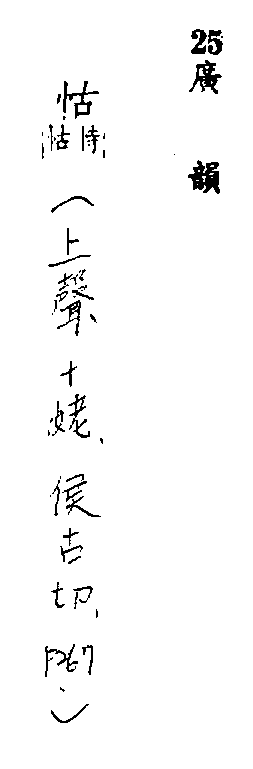 25 廣韻
怙 怙恃 (上聲、十姥、侯古切、P267.)